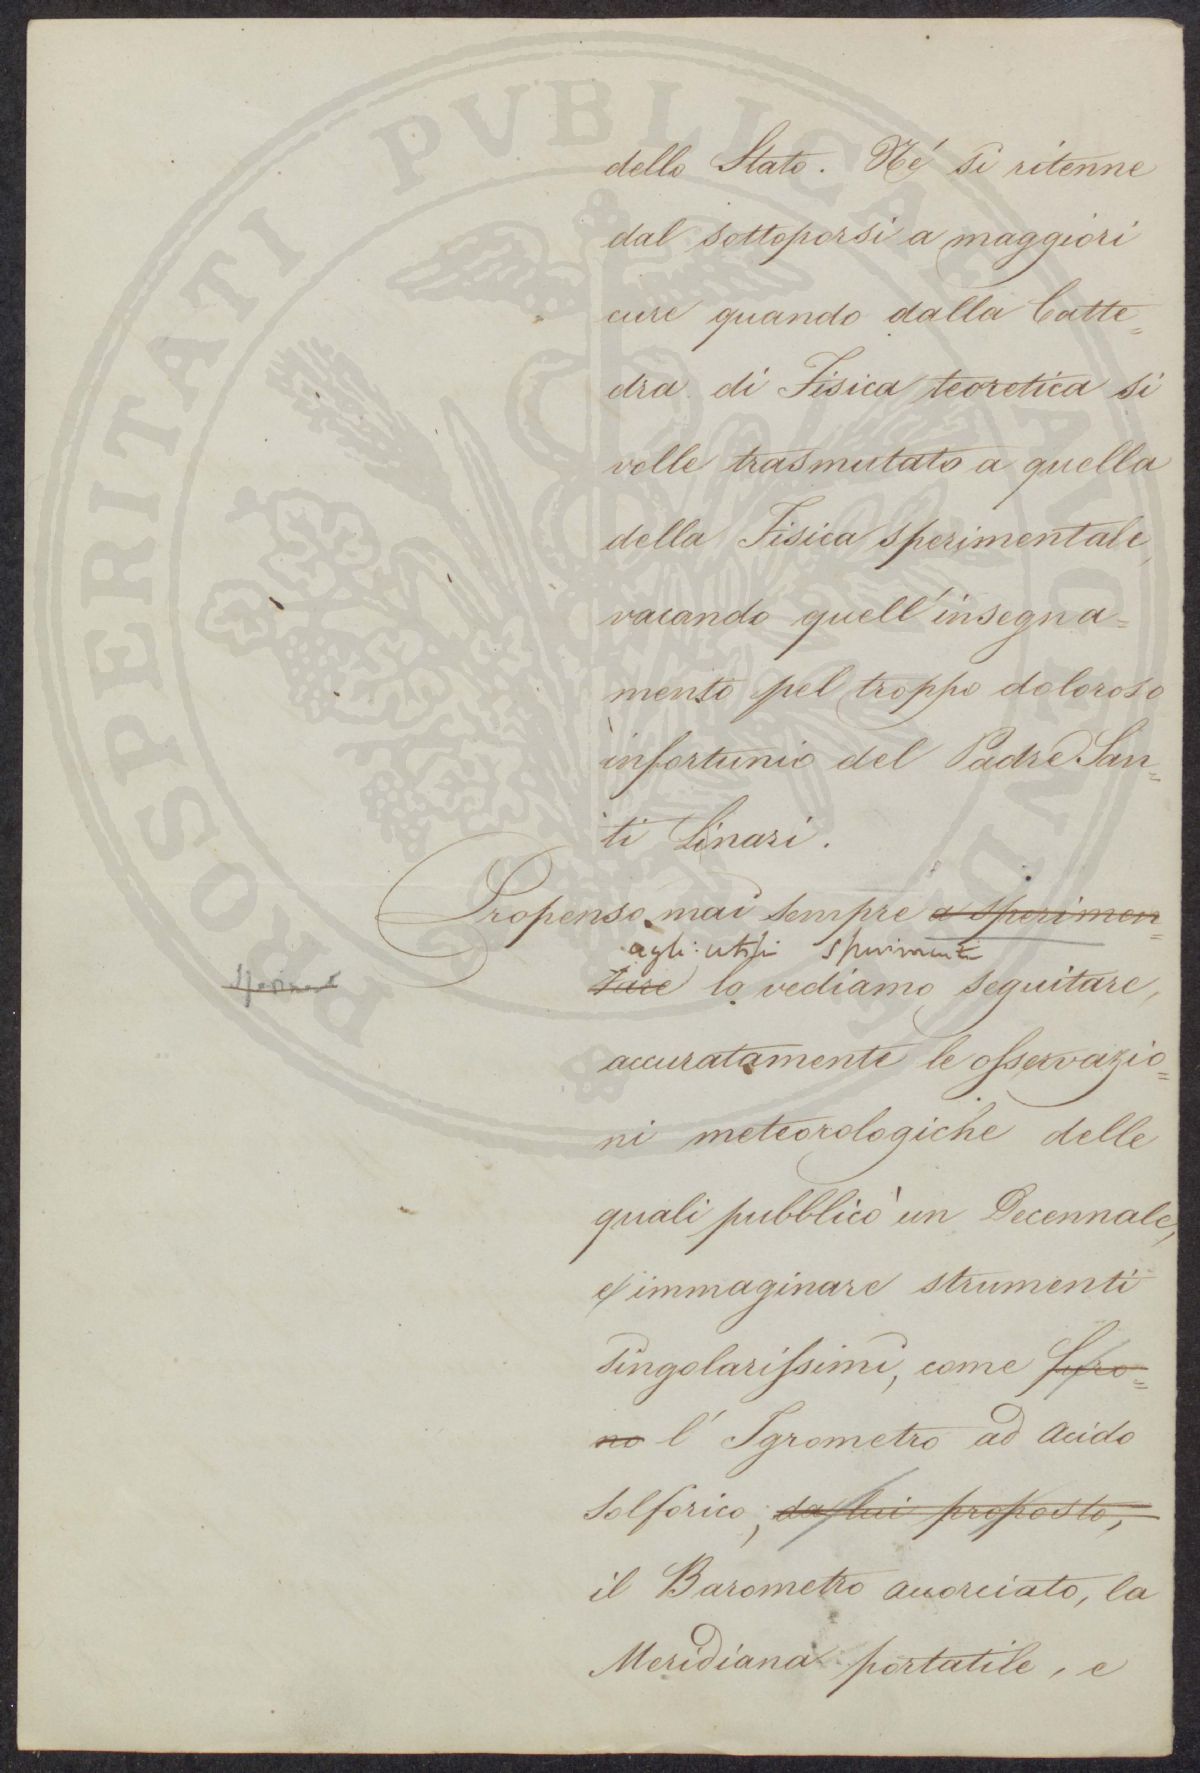 PROSPERITATI PVBLICAE AVGENDAE
dello Stato. Né si ritenne
dal sottoporsi a maggiori
cure quando dalla Catte=
dra di Fisica teoretica si
volle trasmutato a quella
della Fisica sperimentale,
vacando quell'insegna=
mento pel troppo doloroso
infortunio del Padre San=
ti Linari.
Propenso mai sempre a sperimen=
agli utili sperimenti
tare lo vediamo seguitare,
accuratamente le osservazio=
ni meteorologiche delle
quali pubblicò un Decennale,
e immaginare strumenti
singolarissimi, come furo=
no l'Igrometro ad acido
solforico, da lui proposto,
il Barometro accorciato, la
Meridiana portatile, e